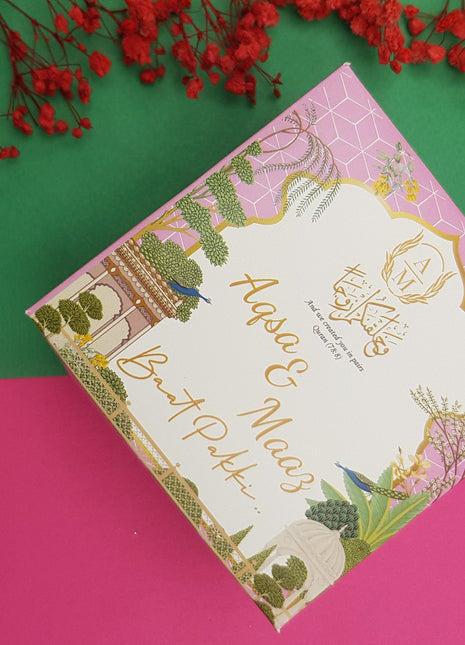 A
M
وَخَلَقْنَاكُمْ أَزْوَاجًا
And we created you in pairs
Quran (78:8)
Aqsa &
Maaz
Baat Pakki..